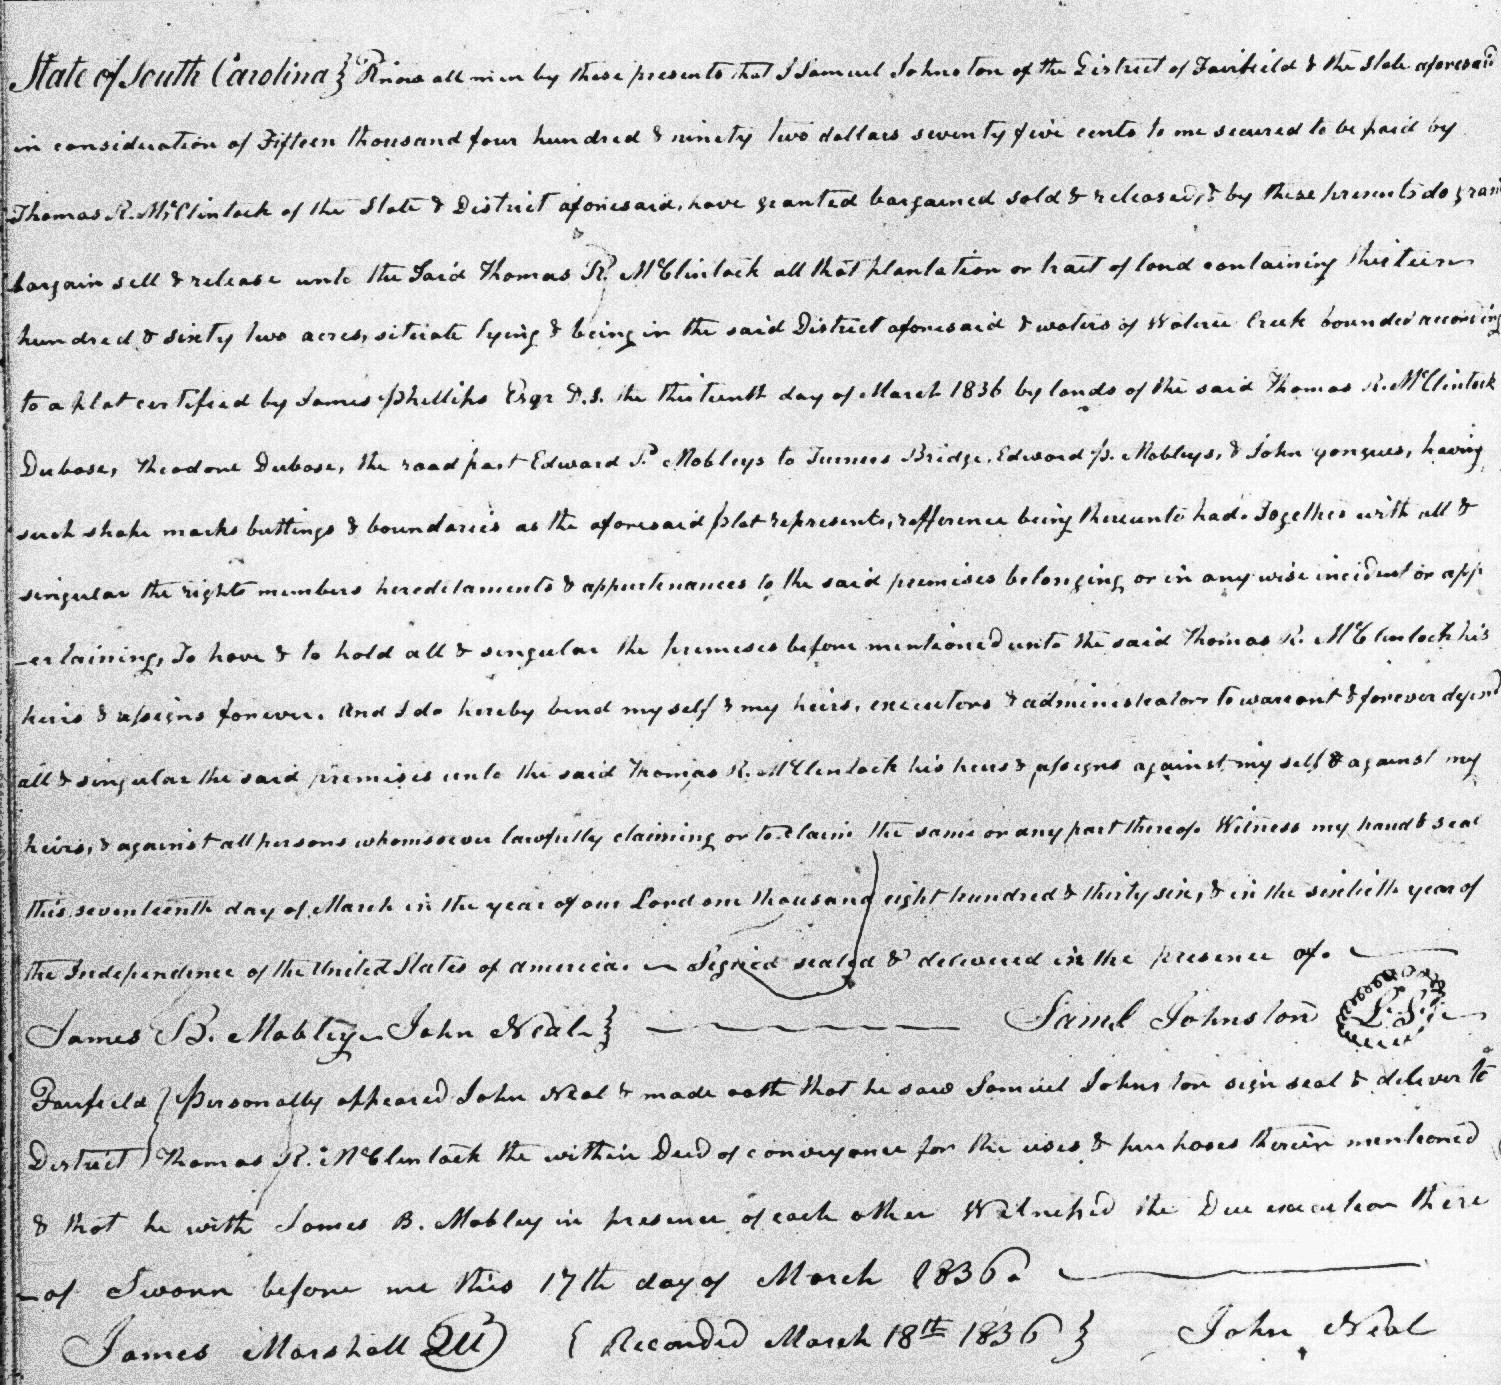 State of South Carolina } Know all men by these presents that I Samuel Johnston of the District of Fairfield & the State aforesaid
in consideration of Fifteen thousand four hundred & ninety two dollars seventy five cents to me secured to be paid by
Thomas R. McClintock of the State & District aforesaid, have granted bargained sold & released, & by these presents do grant
bargain sell & release unto the Said Thomas R. McClintock all that plantation or tract of land containing thirteen
hundred & sixty two acres, situate lying & being in the said District aforesaid & waters of Wateree Creek bounded according
to a plat certified by James Phillips Esqr D.S. the thirteenth day of March 1836 by lands of the said Thomas R. McClintock
Dubose, Theodore Dubose, the road past Edward P. Mobleys to Turners Bridge, Edward P. Mobleys, & John yongues, having
such shape marks buttings & boundaries as the aforesaid plat represents, refference being thereunto had. Together with all &
singular the rights members hereditaments & appurtenances to the said premises belonging or in any wise incident or app
-ertaining, To have & to hold all & singular the premises before mentioned unto the said Thomas R. McClintock his
heirs & assigns forever. And I do hereby bind myself & my heirs, executors & administrators to warrant & forever defend
all & singular the said premises unto the said Thomas R. McClintock his heirs & assigns against my self & against my
heirs, & against all persons whomsoever lawfully claiming or to claim the same or any part thereof. Witness my hand & seal
this seventeenth day of March in the year of our Lord one thousand eight hundred & thirty six, & in the sixtieth year of
the Independence of the United States of america. Signed sealed & delivered in the presence of.
James B. Mobley John Neal } Saml Johnston L.S.
Fairfield } Personally appeared John Neal & made oath that he saw Samuel Johnston sign seal & deliver to
District } Thomas R. McClintock the within Deed of conveyance for the uses & purposes therein mentioned
& that he with James B. Mobley in presence of each other Witnessed the Due execution there
-of Sworn before me this 17th day of March 1836.
James Marshall QU { Recorded March 18th 1836 } John Neal